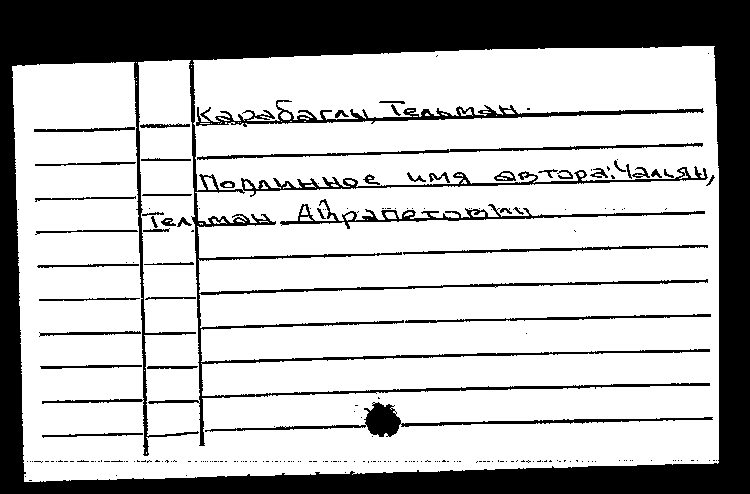 Карабаглы, Тельман.
Подлинное имя автора: Чальян,
Тельман Айрапетович